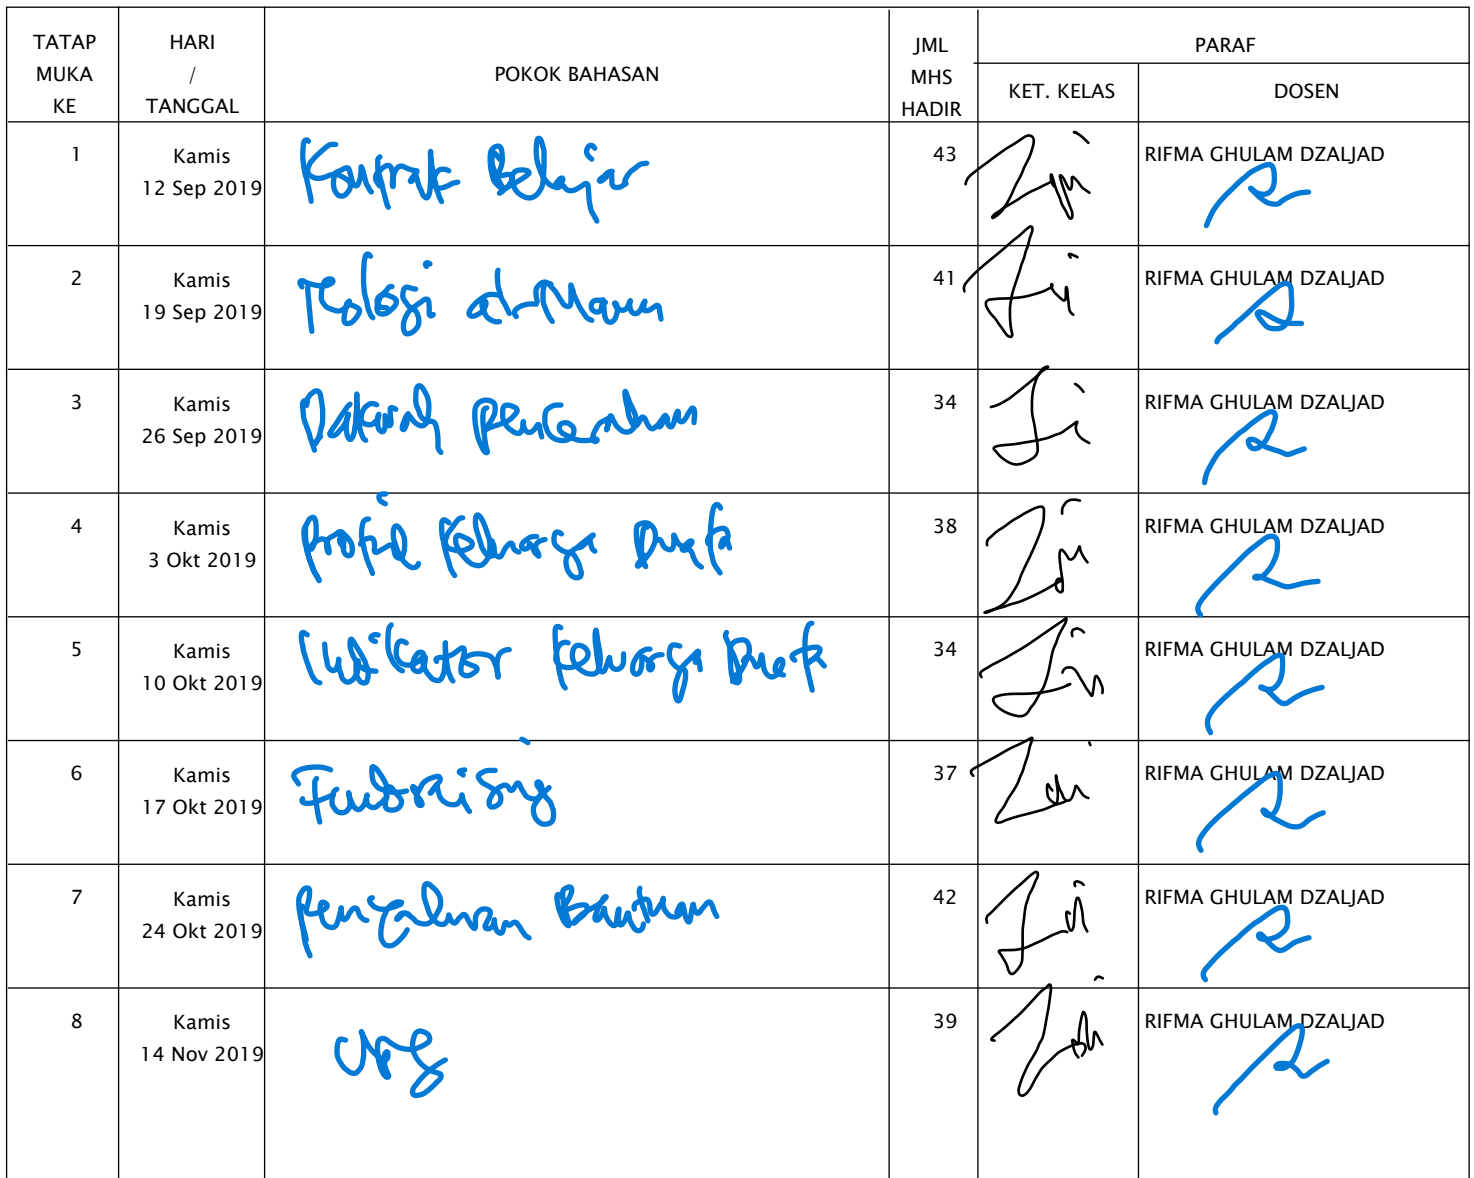 TATAP MUKA KE HARI / TANGGAL POKOK BAHASAN JML MHS HADIR PARAF
KET. KELAS DOSEN
1 Kamis 12 Sep 2019 Kontrak Belajar 43 RIFMA GHULAM DZALJAD
2 Kamis 19 Sep 2019 Teologi al-Maun 41 RIFMA GHULAM DZALJAD
3 Kamis 26 Sep 2019 Dakwah Pencerahan 34 RIFMA GHULAM DZALJAD
4 Kamis 3 Okt 2019 Profil Keluarga Duafa 38 RIFMA GHULAM DZALJAD
5 Kamis 10 Okt 2019 Indikator Keluarga Duafa 34 RIFMA GHULAM DZALJAD
6 Kamis 17 Okt 2019 Fundraising 37 RIFMA GHULAM DZALJAD
7 Kamis 24 Okt 2019 Penyaluran Bantuan 42 RIFMA GHULAM DZALJAD
8 Kamis 14 Nov 2019 39 RIFMA GHULAM DZALJAD